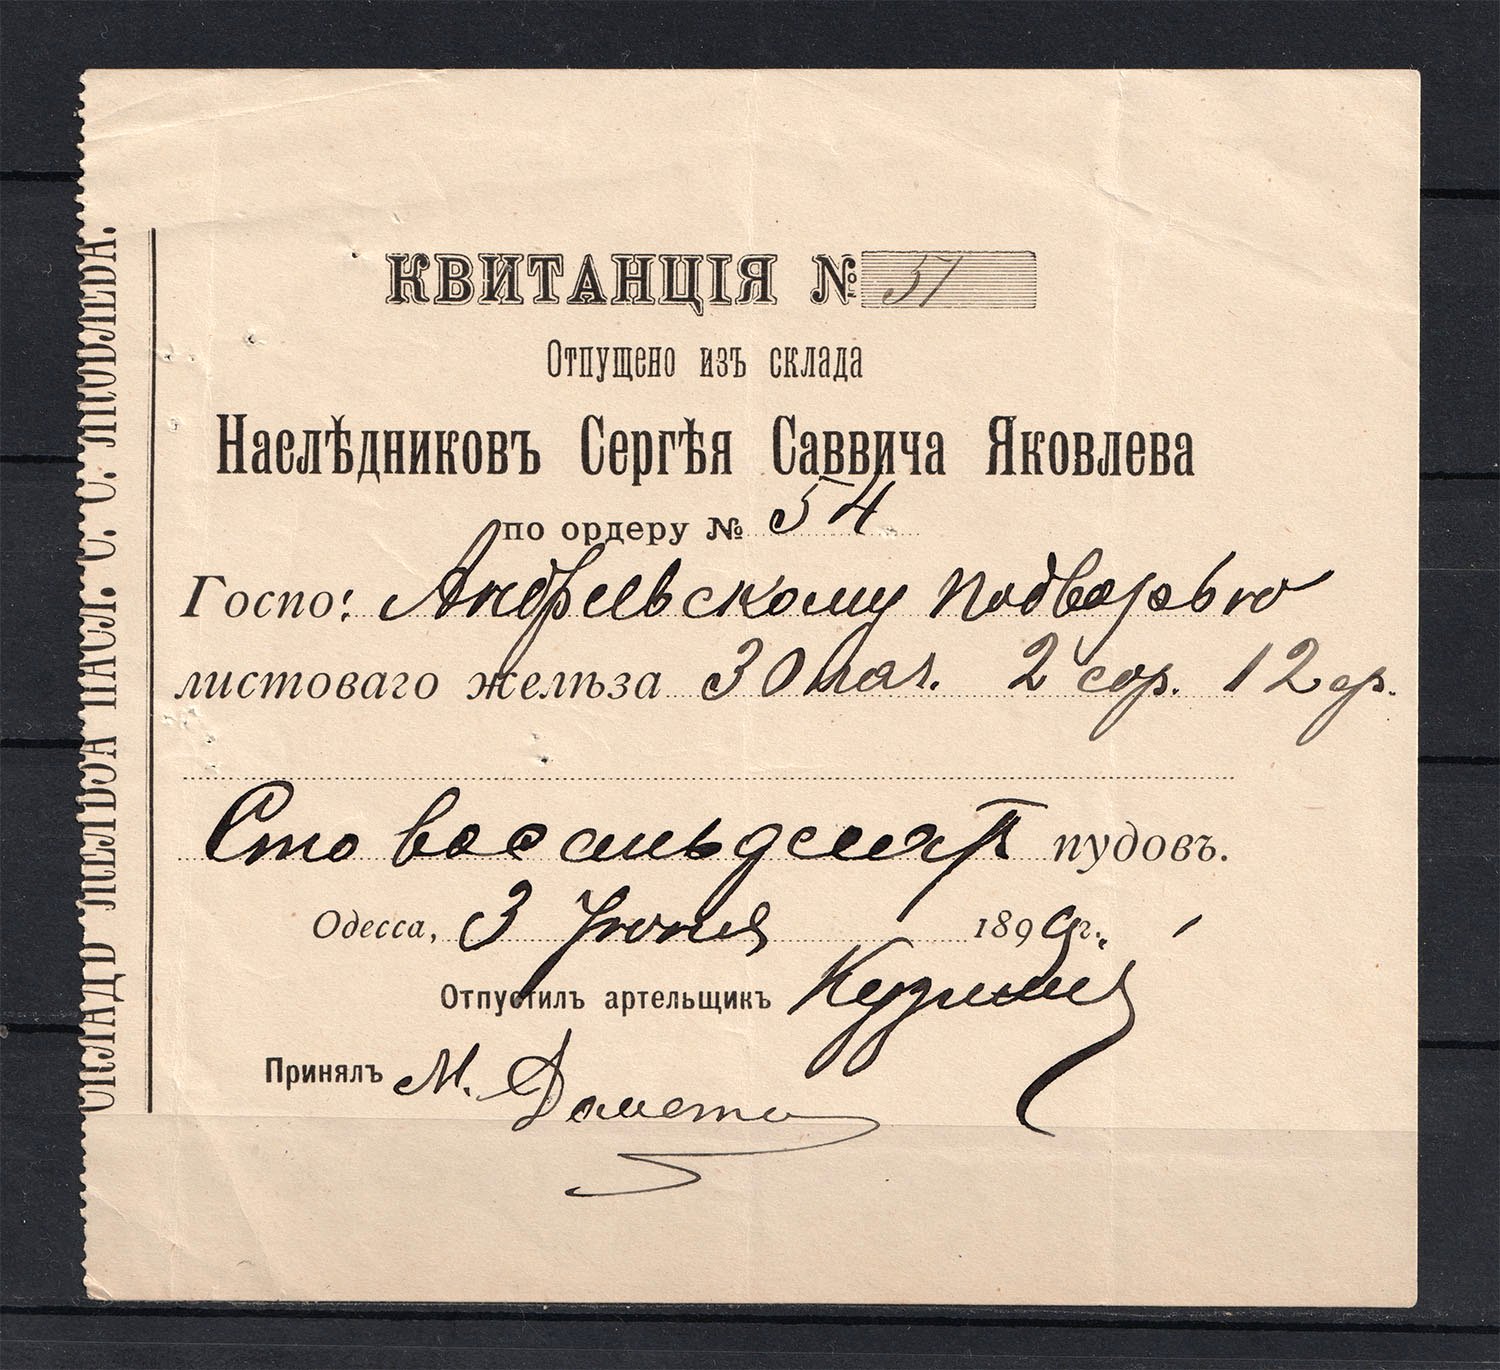 КВИТАНЦІЯ № 51
Отпущено изъ склада
Наслѣдниковъ Сергѣя Саввича Яковлева
по ордеру № 54
Госпо: Андреевскому подворью
листоваго желѣза 30 пач. 2 сор. 12 ф.
Сто восемьдесятъ пудовъ.
Одесса, 3 Іюня 1899 г.
Отпустилъ артельщикъ
Принялъ М.
СКЛАДЪ ЖЕЛѢЗА НАСЛ. С. С. ЯКОВЛЕВА.